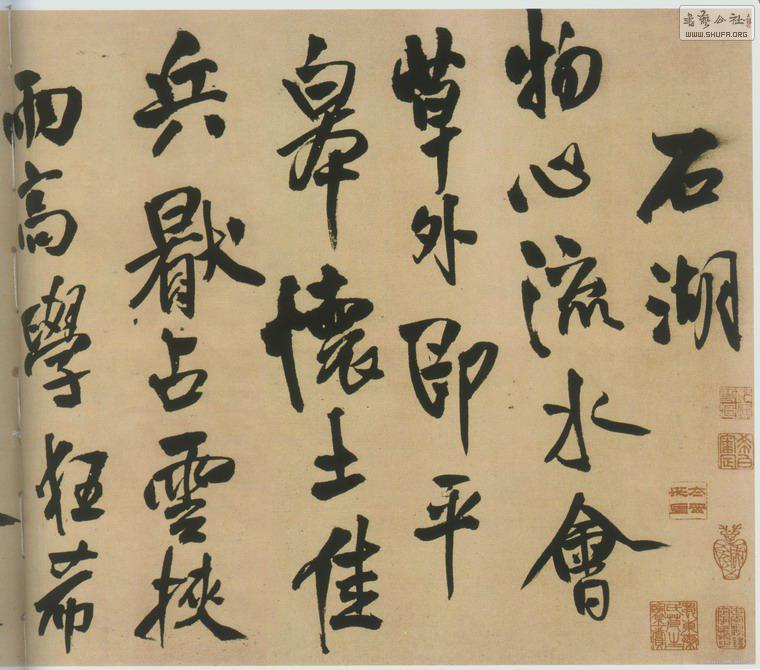 石湖
物心流水會
草外即平
皋懷土佳
兵厭占雲挾
雨高學狂希
WWW.SHUFA.ORG